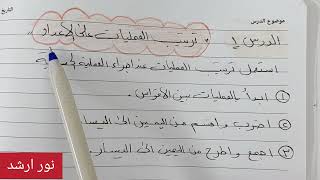 موضوع الدرس
التاريخ
الدرس ١ ترتيب العمليات على الاعداد
استعمل ترتيب العمليات عند اجراء العملية
① ابدأ بالعمليات بين الاقواس.
② اضرب واقسم من اليمين الى اليسار
③ اجمع واطرح من اليمين الى اليسار.
نور ارشد